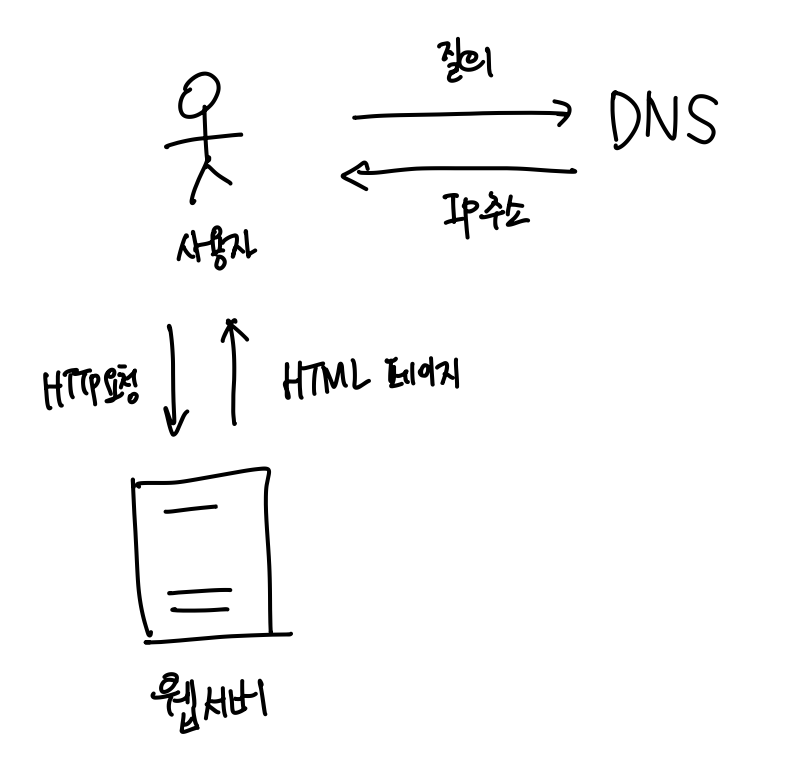 질의
DNS
IP주소
사용자
HTTP요청
HTML 페이지
웹서버